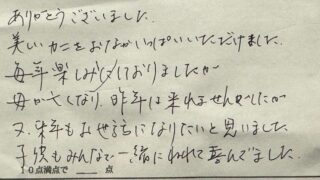 ありがとうございました。
美しいカニをおなかいっぱいいただけました。
毎年楽しみにしておりましたが
母が亡くなり、昨年は来れませんでしたが
又、来年もお世話になりたいと思いました。
子供もみんなで一緒に来れて喜んでました。
10点満点で 点